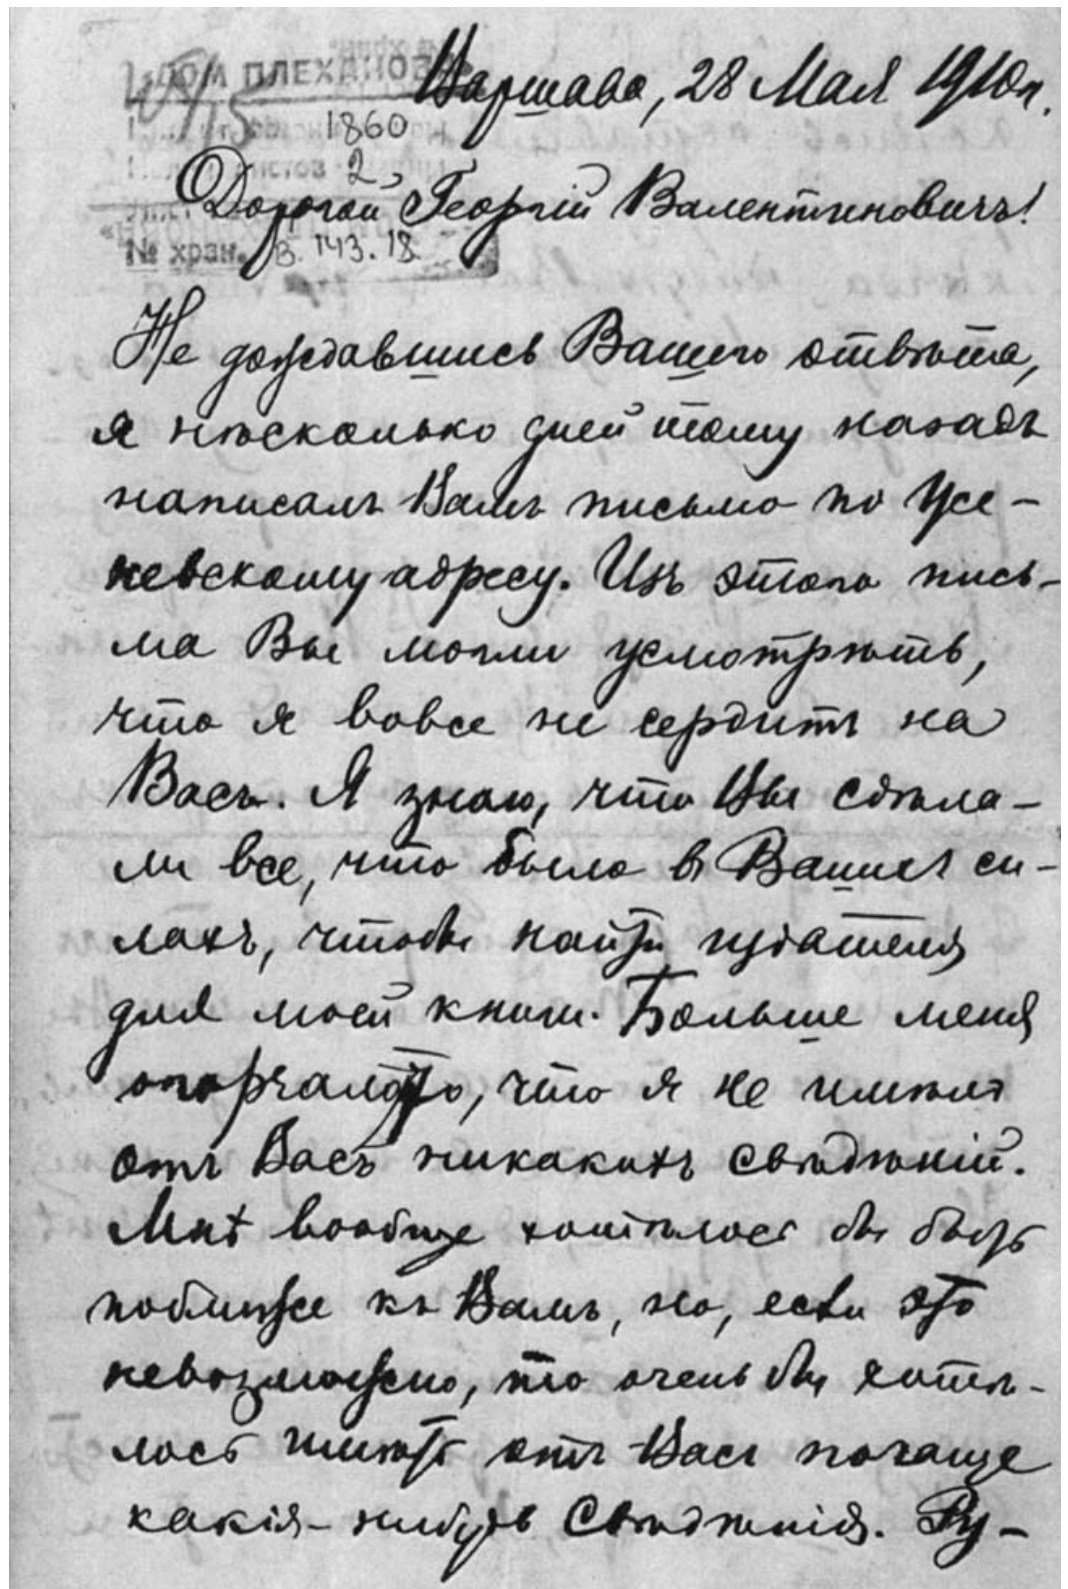 «ДОМ ПЛЕХАНОВА»
Варшава, 28 Мая 1910 г.
1860
2
Дорогой Георгій Валентиновичъ!
№ хран. В. 143. 18
Не дождавшись Вашего отвѣта,
я нѣсколько дней тому назадъ
написалъ Вамъ письмо по Же-
невскому адресу. Изъ этого пись-
ма Вы могли усмотрѣть,
что я вовсе не сердитъ на
Васъ. Я знаю, что Вы сдѣла-
ли все, что было в Вашихъ си-
лахъ, чтобы найти издателя
для моей книги. Больше меня
огорчало то, что я не имѣлъ
отъ Васъ никакихъ свѣдѣній.
Мнѣ вообще хотѣлось бы быть
поближе къ Вамъ, но, если это
невозможно, то очень бы хотѣ-
лось имѣть отъ Васъ почаще
какія-нибудь свѣдѣнія. Ру-